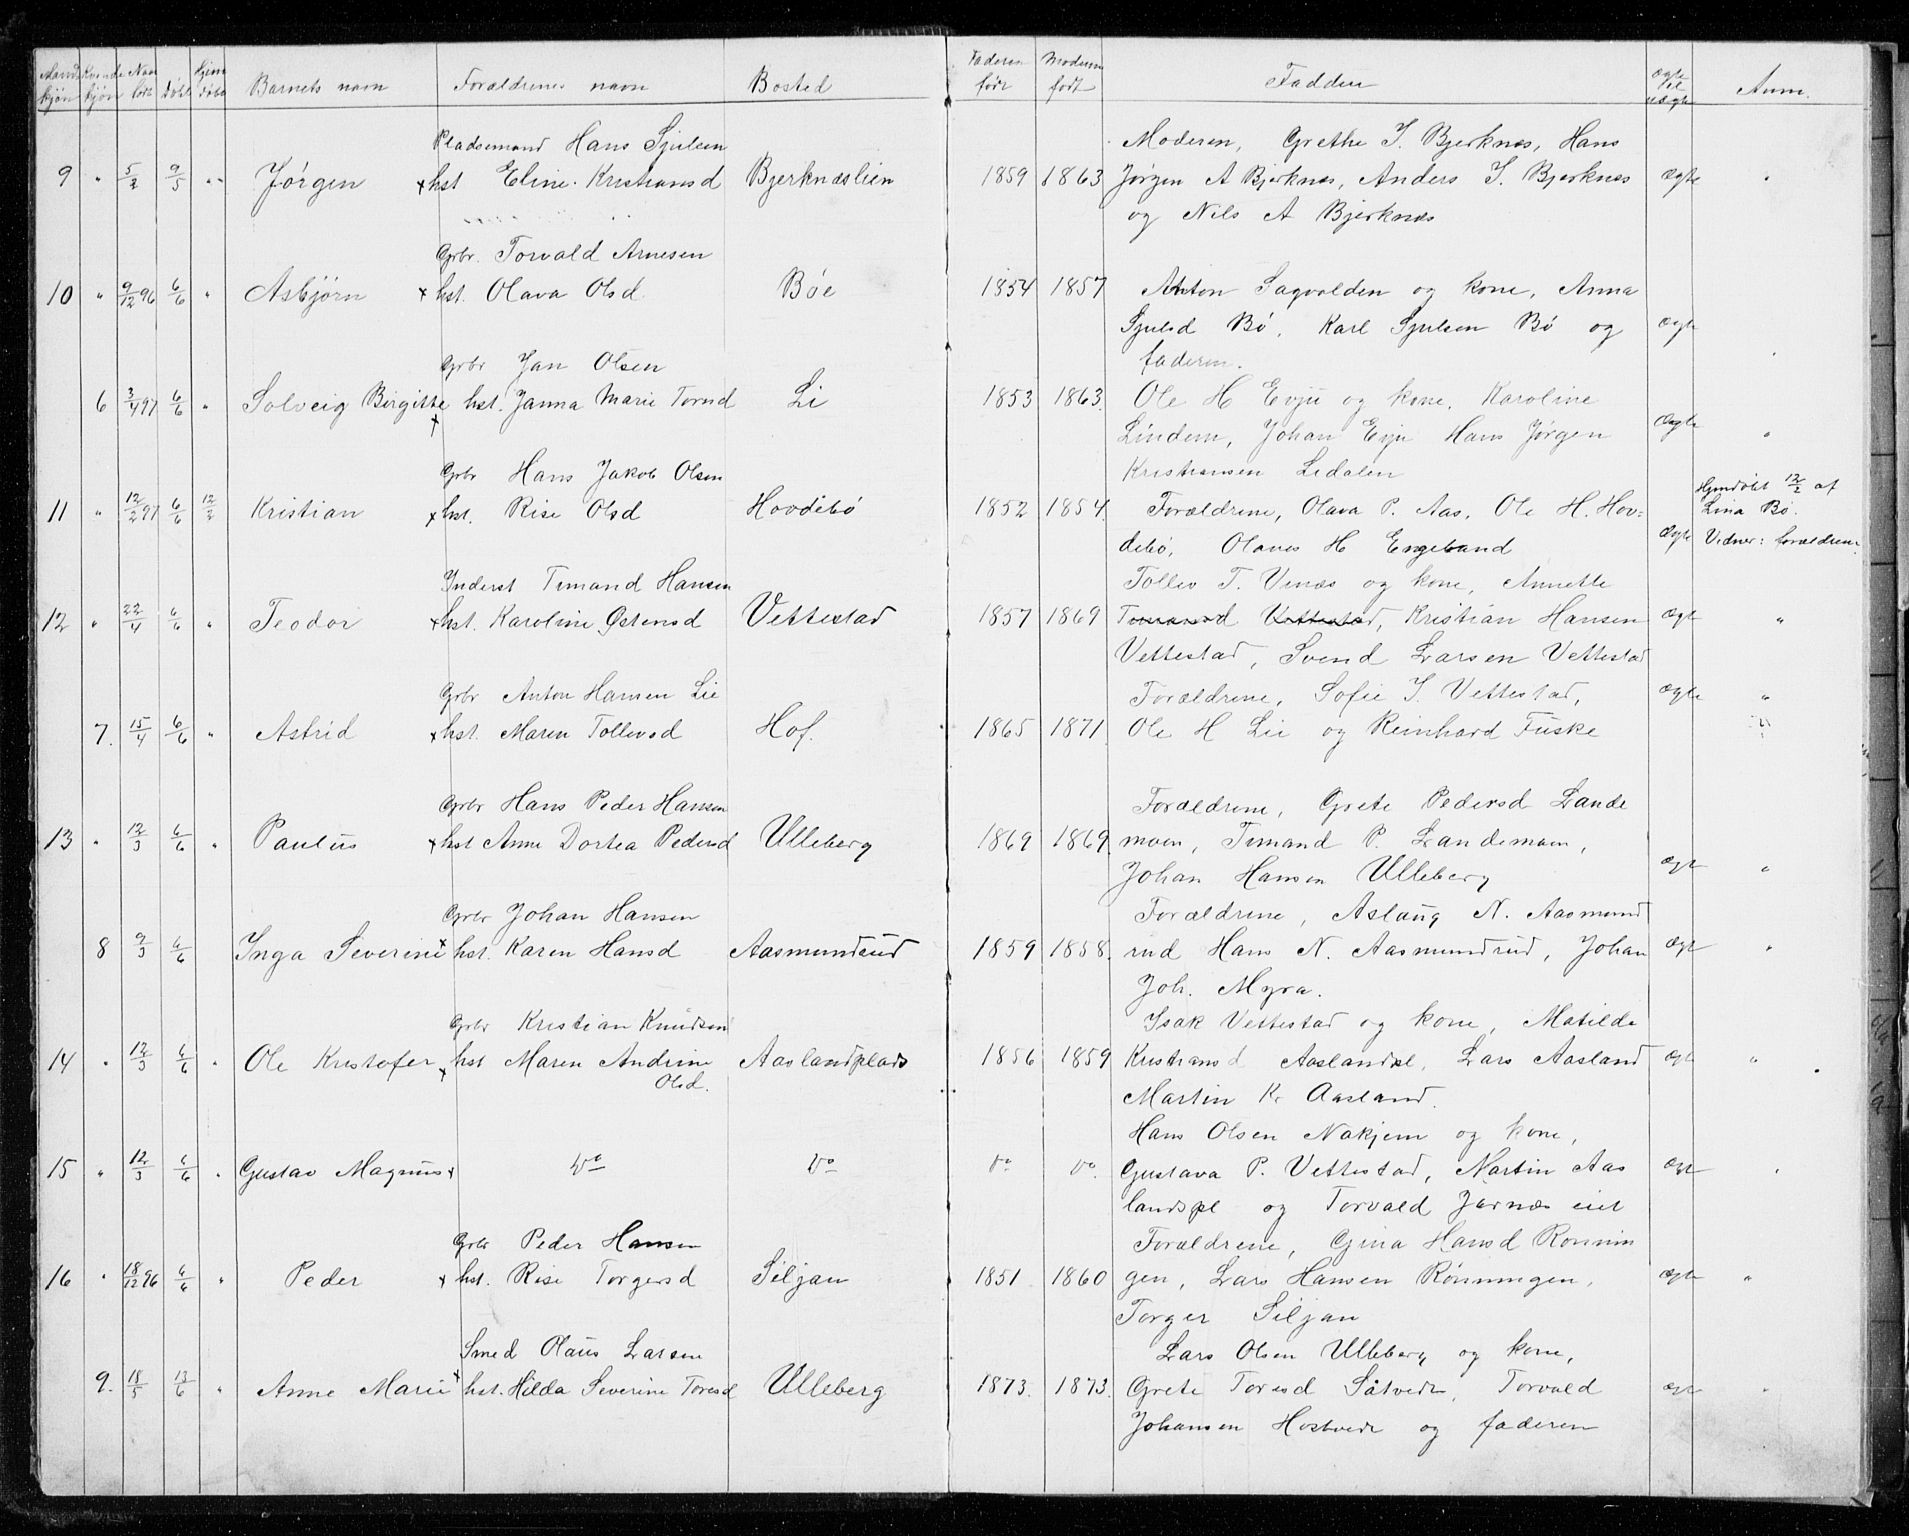 Mand kjøn Kvinde kjøn Naar født døbt Hjem døbt Barnets navn Forældrenes navn Bosted Faderen født Moderen født Faddere ægte el. uægte Anm.
Pladsemand Hans Sjulsen Moderen, Grethe J. Bjerknæs, Hans
9 " 5/2 9/5 " Jørgen hst Eline Kristiansd Bjerknæslien 1859 1863 Jørgen A Bjerknæs, Anders J. Bjerknæs ægte "
og Nils A Bjerknæs
Grbr. Torvald Arnesen
10 " 9/12 96 6/6 " Asbjørn hst. Olava Olsd. Bøe 1854 1857 Anton Sagvolden og kone, Anna
Sjulsd Bø, Karl Sjulsen Bø og ægte
Grbr Jan Olsen faderen.
6 3/4 97 6/6 " Solveig Birgitte hst. Janna Marie Torsd Li 1853 1863. Ole H Evju og kone, Karoline
Lindem, Johan Evju Hans Jørgen ægte "
Grbr Hans Jakob Olsen Kristiansen Lidalen Hjemdøbt 12/2 af
11 " 12/2 97 6/6 12/2 Kristian hst. Rise Olsd Hovdebø 1852 1854. Forældrene, Olava P. Aas, Ole H. Hov= Lina Bø.
debø, Olaves H Engeband ægte Vidner: forældrene.
Inderst Timand Hansen Tollev T. Vinæs og kone, Annette
12 " 22/4 6/6 " Teodor hst. Karoline Østensd Vettestad 1857 1869 Tomand Vettestad, Kristian Hansen ægte "
Vettestad, Svend Larsen Vettestad
Grbr Anton Hansen Lie Forældrene, Sofie J. Vettestad, ægte "
7. 15/4 6/6 " Astrid hst. Maren Tollevsd Hof. 1865 1871. Ole H Lie og Reinhard Fuske
Grbr Hans Peder Hansen Forældrene, Grete Pedersd Lande
13 " 12/3 6/6 " Paulus hst Anne Dortea Pedersd Ulleberg 1869 1869. moen, Timand P. Landemoen,
Johan Hansen Ulleberg ægte "
Grbr Johan Hansen Forældrene, Aslaug N. Aasmund
8 9/3 6/6 Inga Severine hst. Karen Hansd Aasmundrud 1859 1858. rud Hans N. Aasmundrud, Johan ægte "
Joh. Myra.
Grbr Kristian Knudsen Isak Vettestad og kone, Matilde
14 " 12/3 6/6 " Ole Kristofer hst Maren Andrine Aaslandplads 1856 1859 Kristiansd Aaslandpl, Lars Aasland ægte "
Olsd. Martin Kr Aasland.
Hans Olsen Nakjem og kone,
15 " 12/3 6/6 " Gustav Magnus Do Do Do Do. Gustava P. Vettestad, Martin Aas ægte "
landspl og Torvald Jarnæs eiet
Grbr Peder Hansen Forældrene, Gina Hansd Rønnin
16 " 18/12 96 6/6 " Peder hst. Rise Torgersd Siljan 1851 1860 gen, Lars Hansen Rønningen, ægte "
Torger Siljan
Smed Olaus Larsen Lars Olsen Ulleberg og kone,
9. 18/5 13/6 " Anne Marie hst. Hilda Severine Toresd Ulleberg 1873. 1873. Grete Toresd Såtvedt, Torvald ægte "
Johansen Hostvedt og faderen